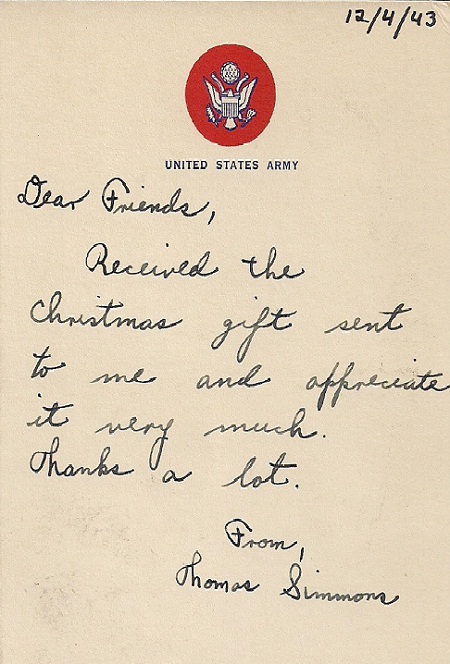 12/4/43
UNITED STATES ARMY
Dear Friends,
Received the
Christmas gift sent
to me and appreciate
it very much.
Thanks a lot.
From,
Thomas Simmons